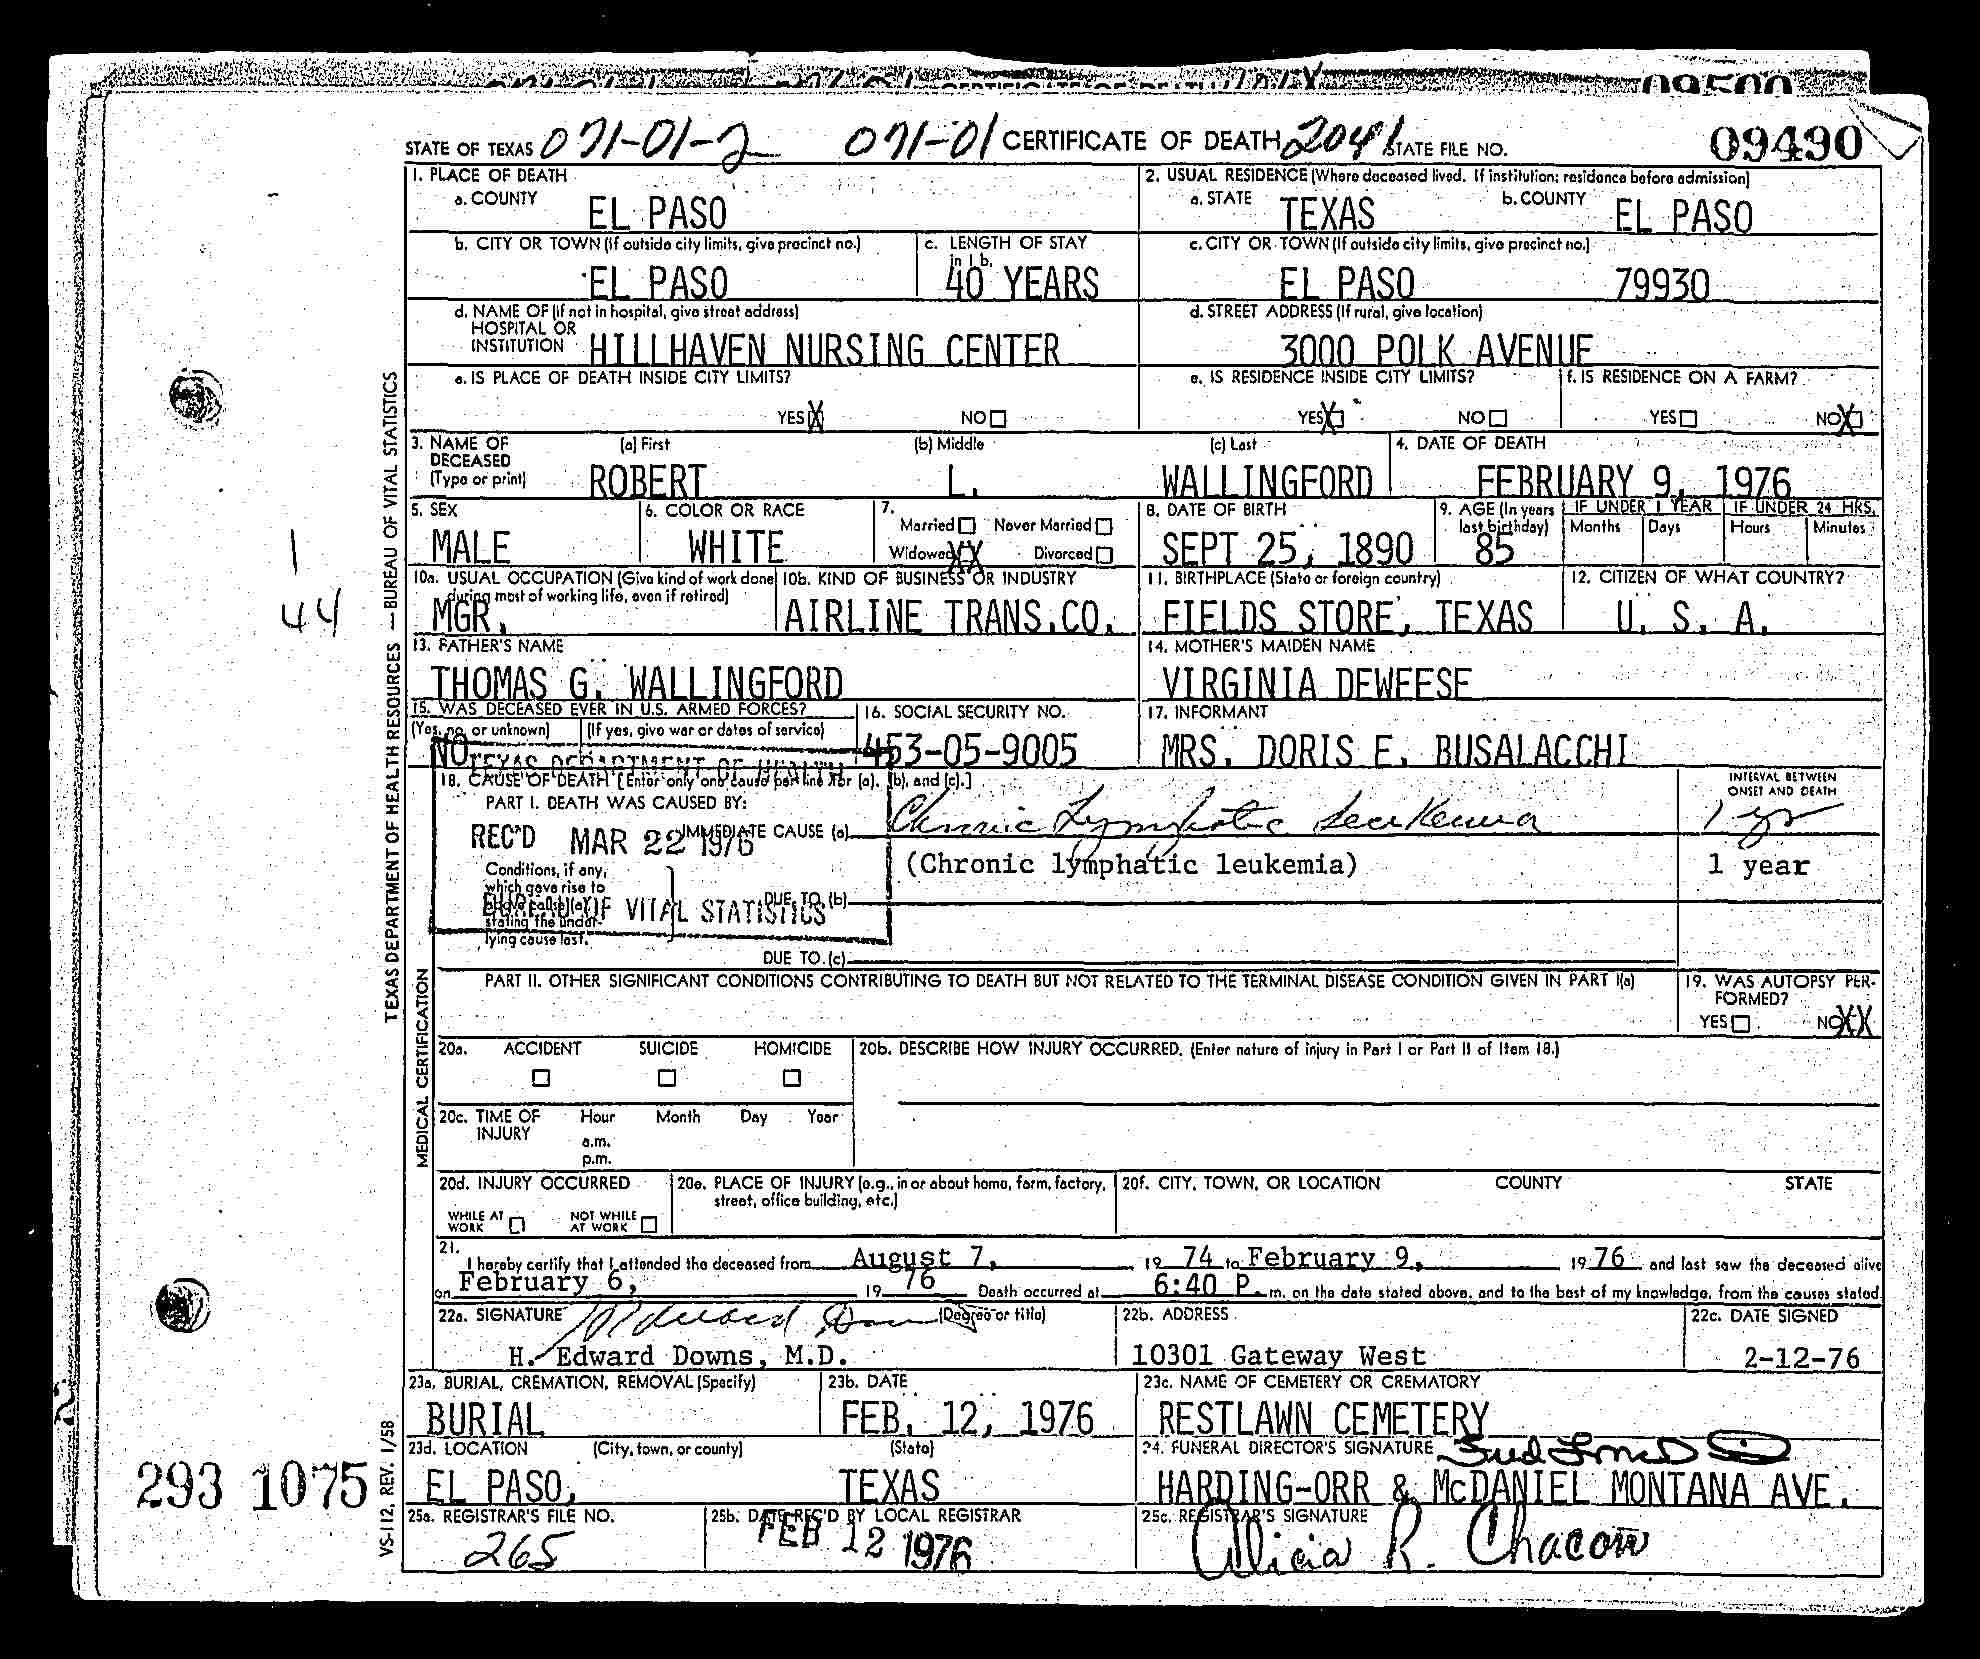 STATE OF TEXAS 071-01-2 071-01 CERTIFICATE OF DEATH 2041 STATE FILE NO. 09490
1. PLACE OF DEATH
a. COUNTY EL PASO
2. USUAL RESIDENCE (Where deceased lived. If institution: residence before admission)
a. STATE TEXAS b. COUNTY EL PASO
b. CITY OR TOWN (If outside city limits, give precinct no.) EL PASO
c. LENGTH OF STAY in 1b. 40 YEARS
c. CITY OR TOWN (If outside city limits, give precinct no.) EL PASO 79930
d. NAME OF (If not in hospital, give street address)
HOSPITAL OR
INSTITUTION HILLHAVEN NURSING CENTER
d. STREET ADDRESS (If rural, give location)
3000 POLK AVENUE
e. IS PLACE OF DEATH INSIDE CITY LIMITS?
YES X NO
e. IS RESIDENCE INSIDE CITY LIMITS?
YES X NO
f. IS RESIDENCE ON A FARM?
YES NO X
3. NAME OF DECEASED (Type or print)
(a) First ROBERT
(b) Middle L.
(c) Last WALLINGFORD
4. DATE OF DEATH
FEBRUARY 9, 1976
5. SEX
MALE
6. COLOR OR RACE
WHITE
7. Married Never Married
Widowed XX Divorced
8. DATE OF BIRTH
SEPT 25, 1890
9. AGE (In years last birthday)
85
IF UNDER 1 YEAR
Months Days
IF UNDER 24 HRS.
Hours Minutes
10a. USUAL OCCUPATION (Give kind of work done during most of working life, even if retired)
MGR.
10b. KIND OF BUSINESS OR INDUSTRY
AIRLINE TRANS.CO.
11. BIRTHPLACE (State or foreign country)
FIELDS STORE, TEXAS
12. CITIZEN OF WHAT COUNTRY?
U. S. A.
13. FATHER'S NAME
THOMAS G. WALLINGFORD
14. MOTHER'S MAIDEN NAME
VIRGINIA DEWEESE
15. WAS DECEASED EVER IN U.S. ARMED FORCES?
(Yes, no, or unknown) (If yes, give war or dates of service)
NO
16. SOCIAL SECURITY NO.
453-05-9005
17. INFORMANT
MRS. DORIS E. BUSALACCHI
TEXAS DEPARTMENT OF HEALTH
REC'D MAR 22 1976
BUREAU OF VITAL STATISTICS
18. CAUSE OF DEATH [Enter only one cause per line for (a), (b), and (c).]
INTERVAL BETWEEN
ONSET AND DEATH
PART I. DEATH WAS CAUSED BY:
IMMEDIATE CAUSE (a) Chronic Lymphatic Leukemia 1 yr
(Chronic lymphatic leukemia) 1 year
Conditions, if any,
which gave rise to
above cause (a)
stating the under-
lying cause last.
DUE TO (b)
DUE TO (c)
PART II. OTHER SIGNIFICANT CONDITIONS CONTRIBUTING TO DEATH BUT NOT RELATED TO THE TERMINAL DISEASE CONDITION GIVEN IN PART I(a)
19. WAS AUTOPSY PER-
FORMED?
YES NO XX
20a. ACCIDENT SUICIDE HOMICIDE
20b. DESCRIBE HOW INJURY OCCURRED. (Enter nature of injury in Part I or Part II of Item 18.)
20c. TIME OF INJURY Hour Month Day Year
a.m.
p.m.
20d. INJURY OCCURRED
WHILE AT WORK NOT WHILE AT WORK
20e. PLACE OF INJURY (e.g., in or about home, farm, factory, street, office building, etc.)
20f. CITY, TOWN, OR LOCATION COUNTY STATE
21. I hereby certify that I attended the deceased from August 7, 19 74 to February 9, 19 76 and last saw the deceased alive
on February 6, 19 76 Death occurred at 6:40 P. m. on the date stated above, and to the best of my knowledge, from the causes stated.
22a. SIGNATURE (Degree or title)
H. Edward Downs, M.D.
22b. ADDRESS
10301 Gateway West
22c. DATE SIGNED
2-12-76
23a. BURIAL, CREMATION, REMOVAL (Specify)
BURIAL
23b. DATE
FEB. 12, 1976
23c. NAME OF CEMETERY OR CREMATORY
RESTLAWN CEMETERY
23d. LOCATION (City, town, or county) (State)
EL PASO, TEXAS
24. FUNERAL DIRECTOR'S SIGNATURE
HARDING-ORR & McDANIEL MONTANA AVE.
25a. REGISTRAR'S FILE NO.
265
25b. DATE REC'D BY LOCAL REGISTRAR
FEB 12 1976
25c. REGISTRAR'S SIGNATURE
Alicia R. Chacon
TEXAS DEPARTMENT OF HEALTH RESOURCES — BUREAU OF VITAL STATISTICS
MEDICAL CERTIFICATION
VS-112, REV. 1/58
1
44
293 1075
09500